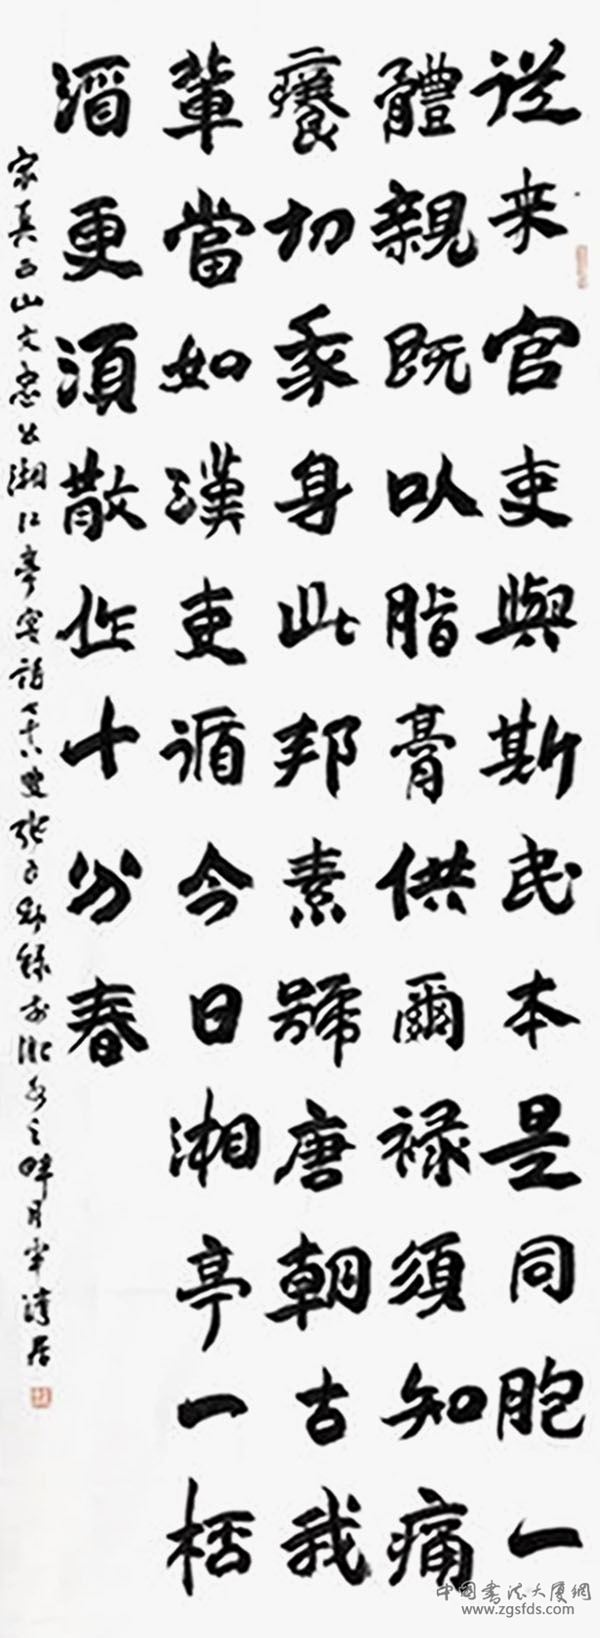 從来官吏與斯民本是同胞一
體親既以脂膏供爾禄須知痛
癢切身此邦素號唐朝古我
輩當如漢吏循今日湘亭一桮
酒更須散作十分春
家真西山文忠公湘江亭詩七十八叟張錄於之畔月半居
中国书法大厦網
www.zgsfds.com